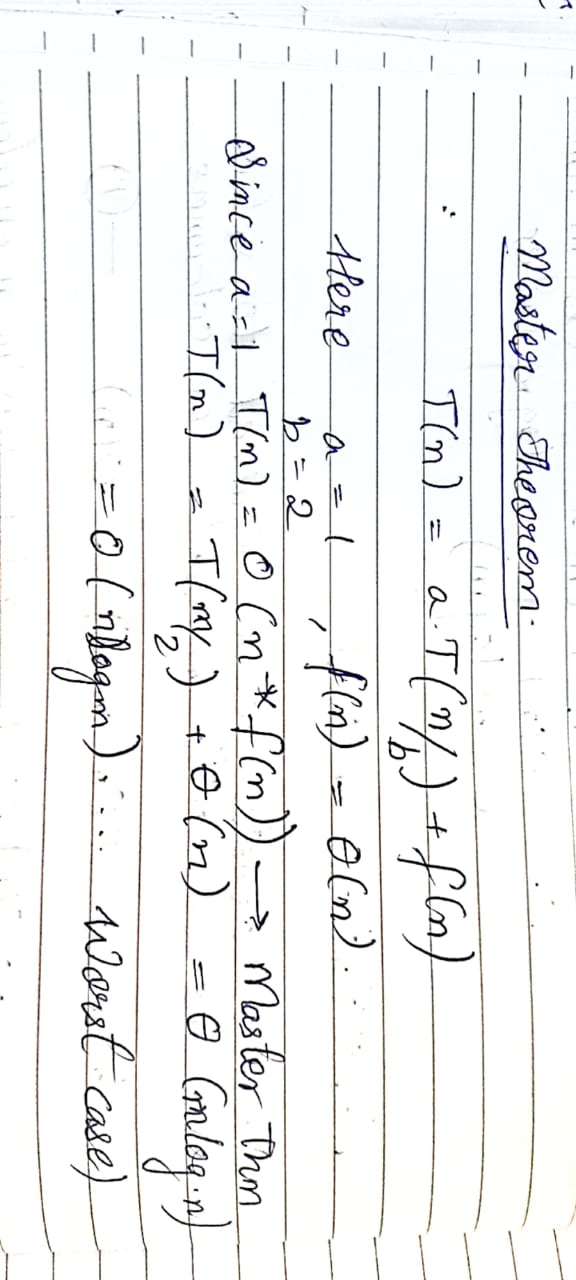 Master Theorem.
∴ T(n) = a.T(n/b) + f(n)
Here a = 1 , f(n) = θ(n).
b = 2
Since a = 1 T(n) = O(n * f(n)) → Master Thm
T(n) = T(n/2) + θ(n) = θ(n log n)
= O(n log n) ... Worst case)